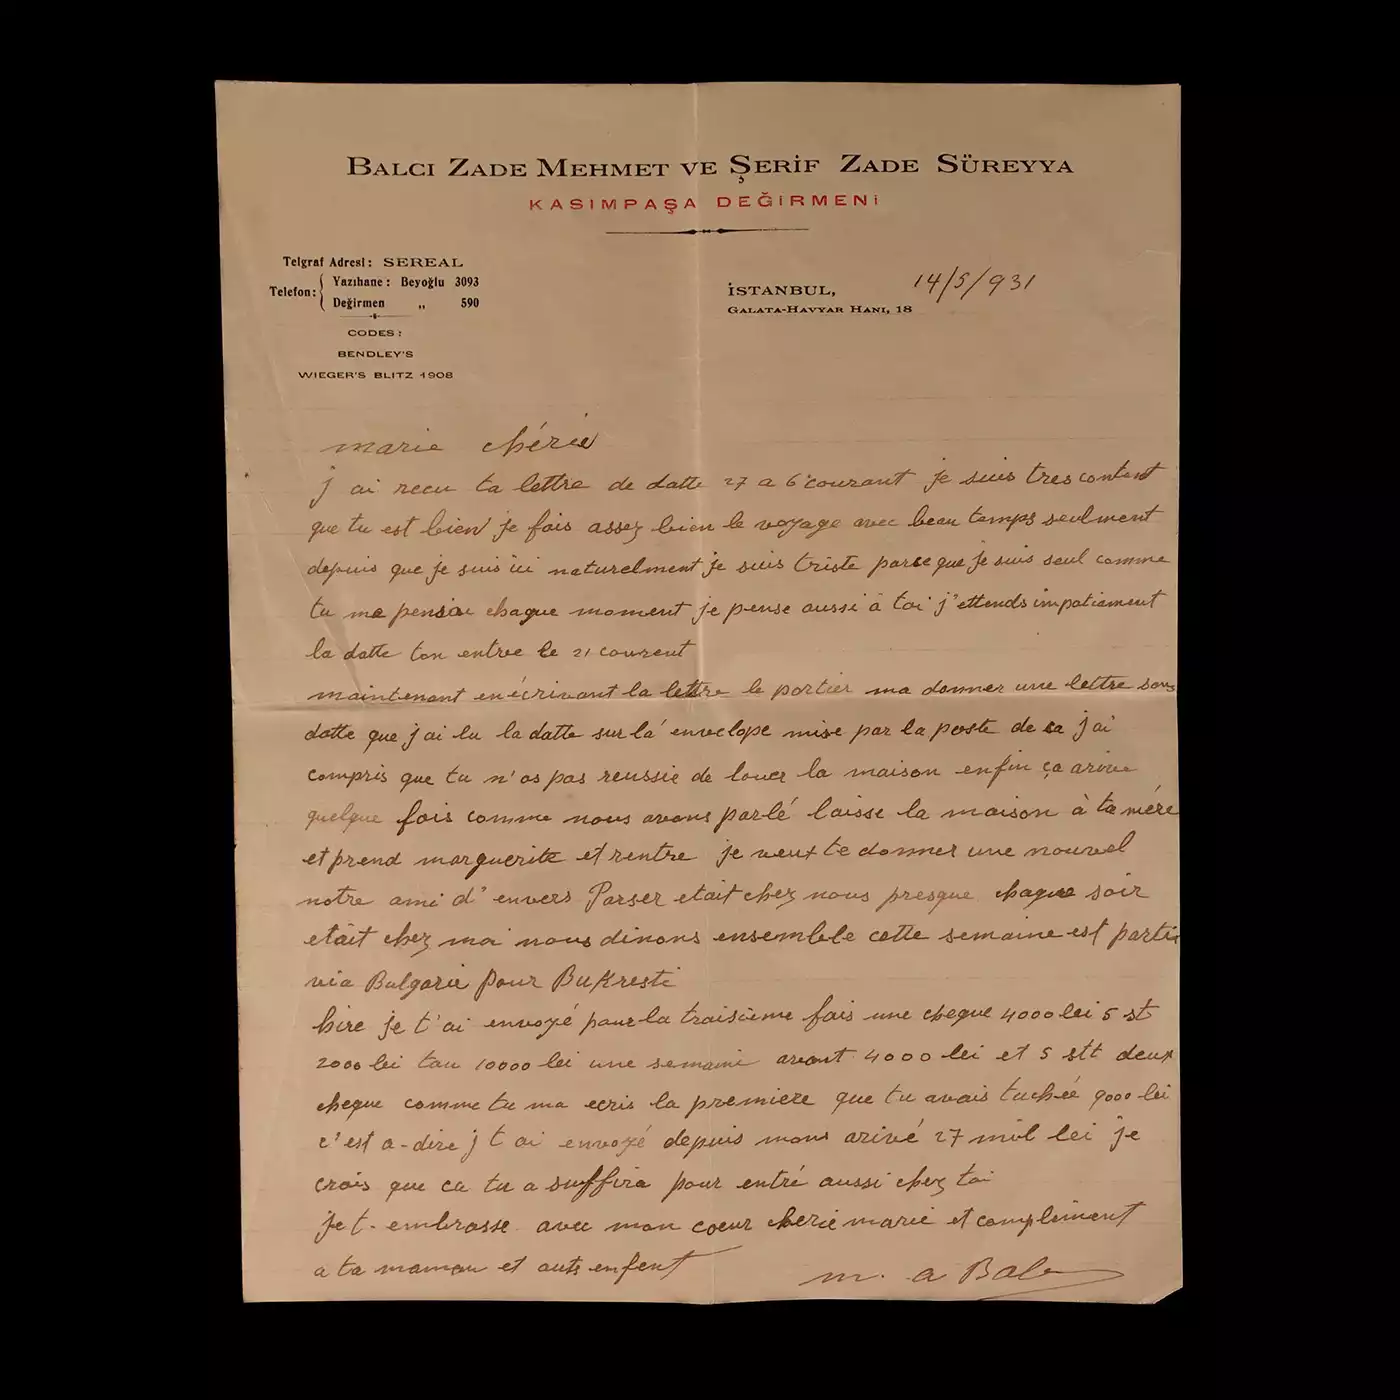 BALCI ZADE MEHMET VE ŞERİF ZADE SÜREYYA
KASIMPAŞA DEĞİRMENİ
Telgraf Adresi: SEREAL
Telefon: Yazıhane: Beyoğlu 3093
Değirmen „ 590
CODES:
BENDLEY'S
WIEGER'S BLITZ 1908
İSTANBUL, 14/5/931
GALATA-HAVYAR HANI, 18
marie chérie
j ai recu ta lettre de datte 27 a 6 courant je suis tres contant
que tu est bien je fais assez bien le voyage avec beau temps seulment
depuis que je suis ici naturelment je suis triste parce que je suis seul comme
tu me chaque moment je pense aussi à toi j'ettends impatiament
la datte ton entre le 21 courent
maintenant en écrivant la lettre le portier ma donner une lettre sans
datte que j'ai lu la datte sur la envelope mise par la poste de sa j'ai
compris que tu n'as pas reussie de louer la maison enfin ça arive
quelque fois comme nous avons parlé laisse la maison à ta mére
et prend marguerite et rentre je veux te donner une nouvel
notre ami d'envers Parser etait chez nous presque chaque soir
etait chez moi nous dinons ensemble cette semaine est parti
via Bulgarie pour Bukresti
hire je t'ai envoyé pour la traisieme fois une cheque 4000 lei 5 st
2000 lei tau 10000 lei une semaine avant 4000 lei et 5 stt deux
cheque comme tu ma ecris la premiere que tu avais tuchée 9000 lei
c'est a-dire j t ai envoyé depuis mons arivé 27 mil lei je
crois que ca tu a suffira pour entré aussi chez toi
je t embrasse avec mon coeur cherie marie et compliment
a ta maman et enfent
m. a